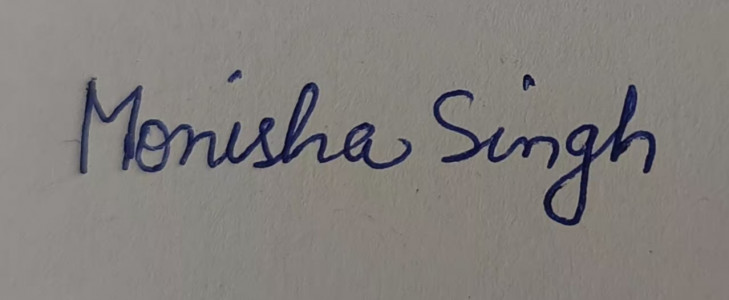 Monisha Singh